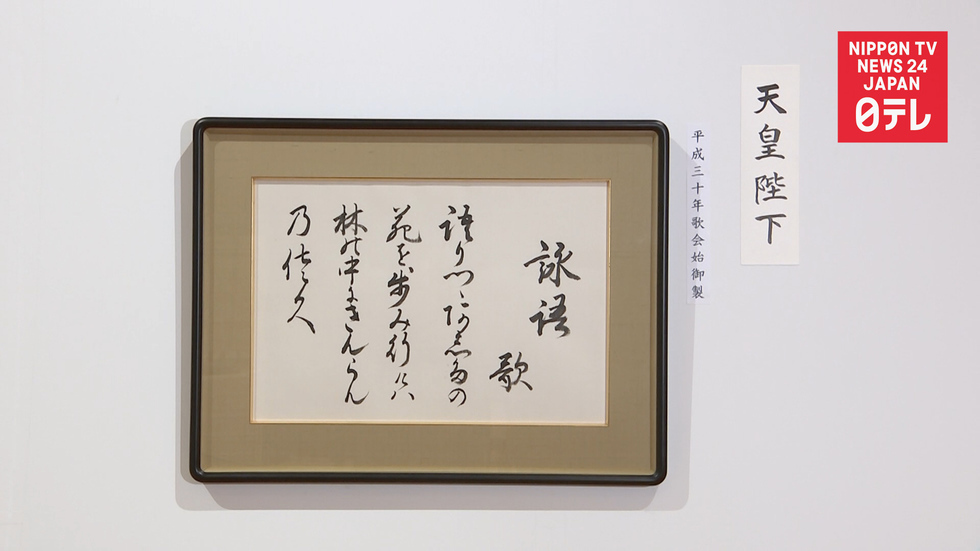 NIPPON TV
NEWS 24
JAPAN
日テレ
天皇陛下
平成三十年歌会始御製
詠語
歌
語りつゝ阿志多の
苑を歩み行けハ
林能中尓きんらん
乃佐久